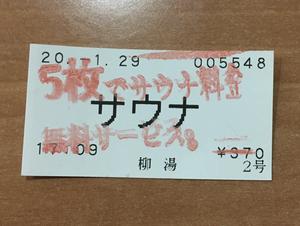 20.-1.29 005548
5枚でサウナ料金
サウナ
無料サービス
17:09 ¥370
柳湯 2号